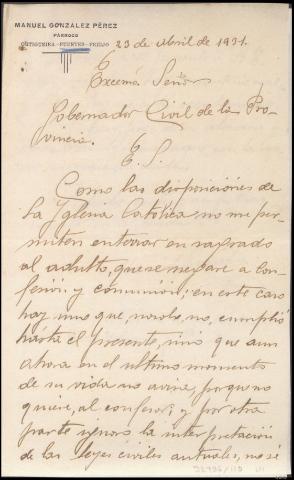 MANUEL GONZÁLEZ PÉREZ
PÁRROCO
FUENTES-PREIJO
23 de Abril de 1931.
Excemo Señor
Gobernador Civil de la Pro-
vincia.
E. S.
Como las disposiciónes de
la Yglesia Católica no me per-
miten enterrar en sagrado
al adulto, que se negare a con-
fesión y comunión; en este caso
hay uno que, no solo no, cumplió
hasta el presente, sino que aun
ahora en el ultimo momento
de su vida no avisa, porque no
quiere, al confesor; y por otra
parte ignoro la interpretación
de las leyes civiles actuales, no sé